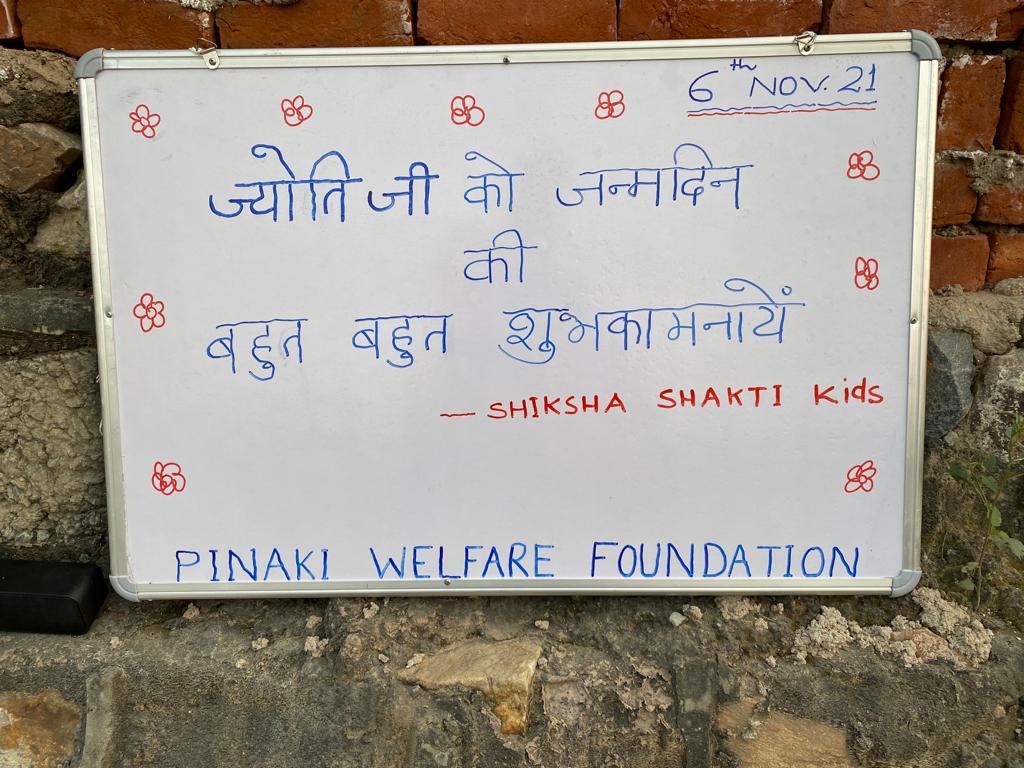 6th NOV. 21
ज्योति जी को जन्मदिन
की
बहुत बहुत शुभकामनायें
— SHIKSHA SHAKTI Kids
PINAKI WELFARE FOUNDATION